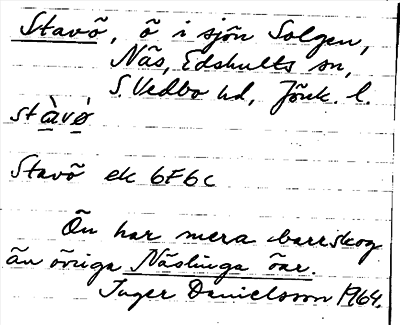 Stavö, ö i sjön Solgen,
Näs, Edshults sn,
S. Vedbo hd, Jönk. l.
stàvǿ
Stavö ek 6F6c
Ön har mera barrskog
än övriga Näslinga öar.
Inger Danielsson 1964.